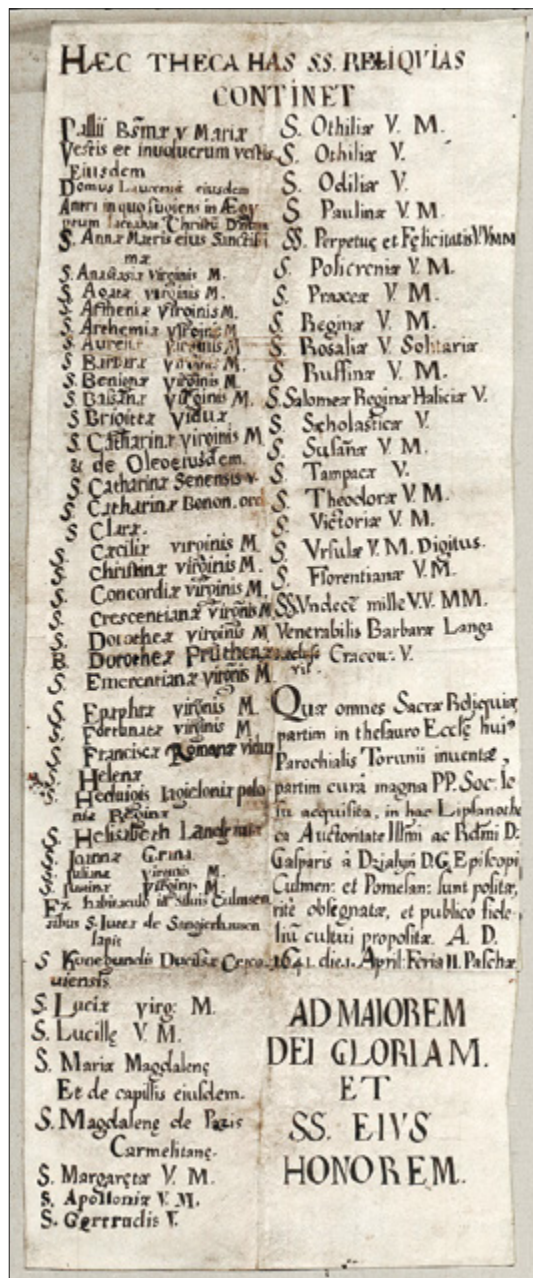 HÆC THECA HAS SS. RELIQVIAS
CONTINET
Pallii Bsmæ V Mariæ
Vestis et inuolucrum vestis
Eiusdem
Domus Lauretanæ eiusdem
Antri in quo fugiens in Ægy
ptum lactabat Christū
S. Annæ Matris eius Sanctissi
mæ
S. Anastasiæ Virginis M.
S. Agatæ virginis M.
S. virginis M.
S. Arthemiæ virginis M
S. Aureliæ Virginis M
S. Barbaræ virginis M.
S. Benignæ virginis M.
S. virginis M.
S Brigittæ Viduæ
S. Catharinæ virginis M
& de Oleo eiusdem.
S Catharinæ Senensis V.
S Catharinæ Bonon. ord
S Claræ.
S. Cæciliæ virginis M.
S. Christinæ virginis M.
S. Concordiæ virginis M
S. Crescentianæ virginis M
S. Dorotheæ virginis M
B. Dorotheæ Pruthenæ
S. Emerentianæ virginis M
S. virginis M.
S. Fortunatæ virginis M.
S. Franciscæ Romanæ viduæ
S. Helenæ
S. Heduigis Iagieloniæ polo
niæ Reginæ
S. Helisabeth
S Ioannæ
S. Iulianæ virginis M.
S. Iustinæ virginis M.
Ex habitaculo in siluis Culmen
sibus S. Iuttæ de Sangerhausen
lapis
S Kunegundis Ducissæ Craco
uiensis
S. Luciæ virg: M.
S. Lucillę V M.
S. Mariæ Magdalenę
Et de capillis eiusdem.
S. Magdalenę de Pazis
Carmelitanę.
S. Margaretæ V. M.
S. Apolloniæ V. M.
S. Gertrudis V.
S. Othiliæ V. M.
S. Othiliæ V.
S. Odiliæ V.
S Paulinæ V. M.
SS. Perpetuę et Fęlicitatis V. V MM
S. Policreniæ V. M.
S. Praxeæ V. M.
S. Reginæ V. M.
S. Rosaliæ V. Solitariæ
S. Ruffinæ V. M.
S. Salomeæ Reginæ Haliciæ V.
S. Scholasticæ V.
S. Susañæ V. M.
S. Tampacæ V.
S. Theodoræ V. M.
S. Victoriæ V. M.
S. Vrsulæ V. M. Digitus.
S. Florentianæ V. M.
SS Vndecē mille V.V. MM.
Venerabilis Barbaræ Langa
Cracou: V.
Quæ omnes Sacræ Reliquiæ
partim in thesauro Ecclę huiꝰ
Parochialis Torunii inuentæ,
partim curâ magna PP. Soc: Ie
su acquisita, in hac Lipsanothe
ca Auctoritate Illmi ac Rdmi D:
Gasparis à Dzialyn D.G. Episcopi
Culmen: et Pomesan: sunt positæ,
ritè obsignatæ, et publico fide
liū cultui propositæ. A. D.
1641. die.1. April: Feria II. Paschæ
AD MAIOREM
DEI GLORIAM.
ET
SS. EIVS
HONOREM.